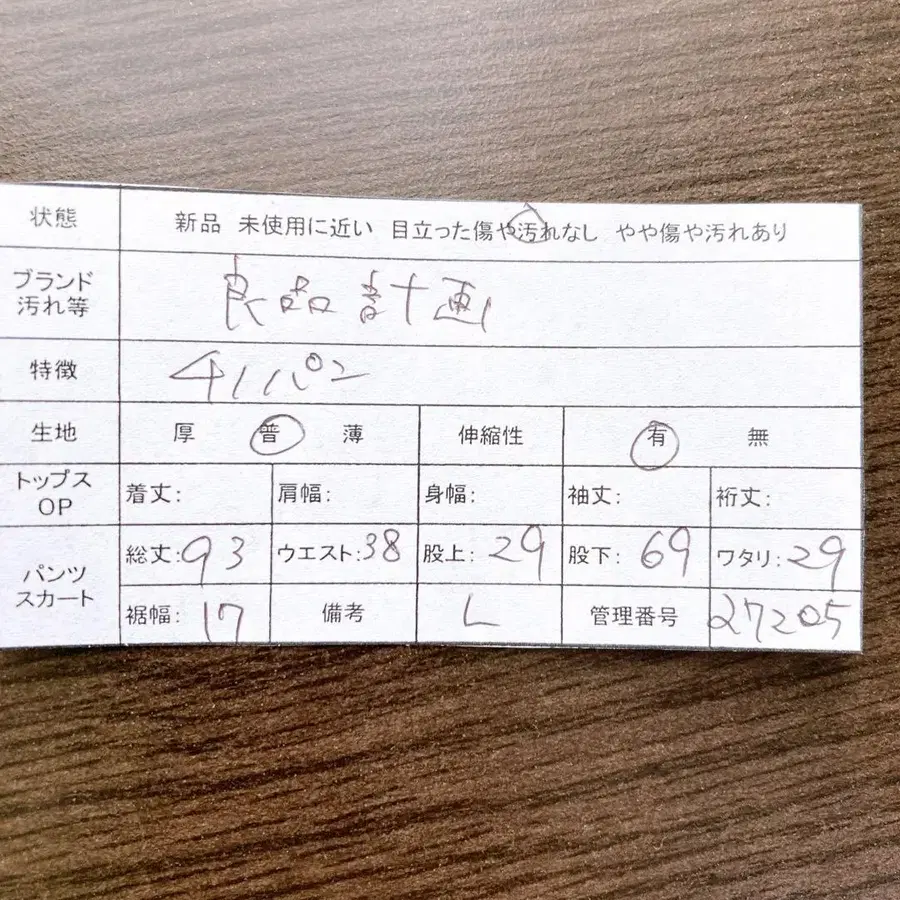 状態 新品 未使用に近い 目立った傷や汚れなし やや傷や汚れあり
ブランド
汚れ等 良品計画
特徴 チノパン
生地 厚 普 薄 伸縮性 有 無
トップス
OP 着丈: 肩幅: 身幅: 袖丈: 裄丈:
パンツ
スカート 総丈:93 ウエスト:38 股上:29 股下:69 ワタリ:29
裾幅:17 備考 L 管理番号 27205